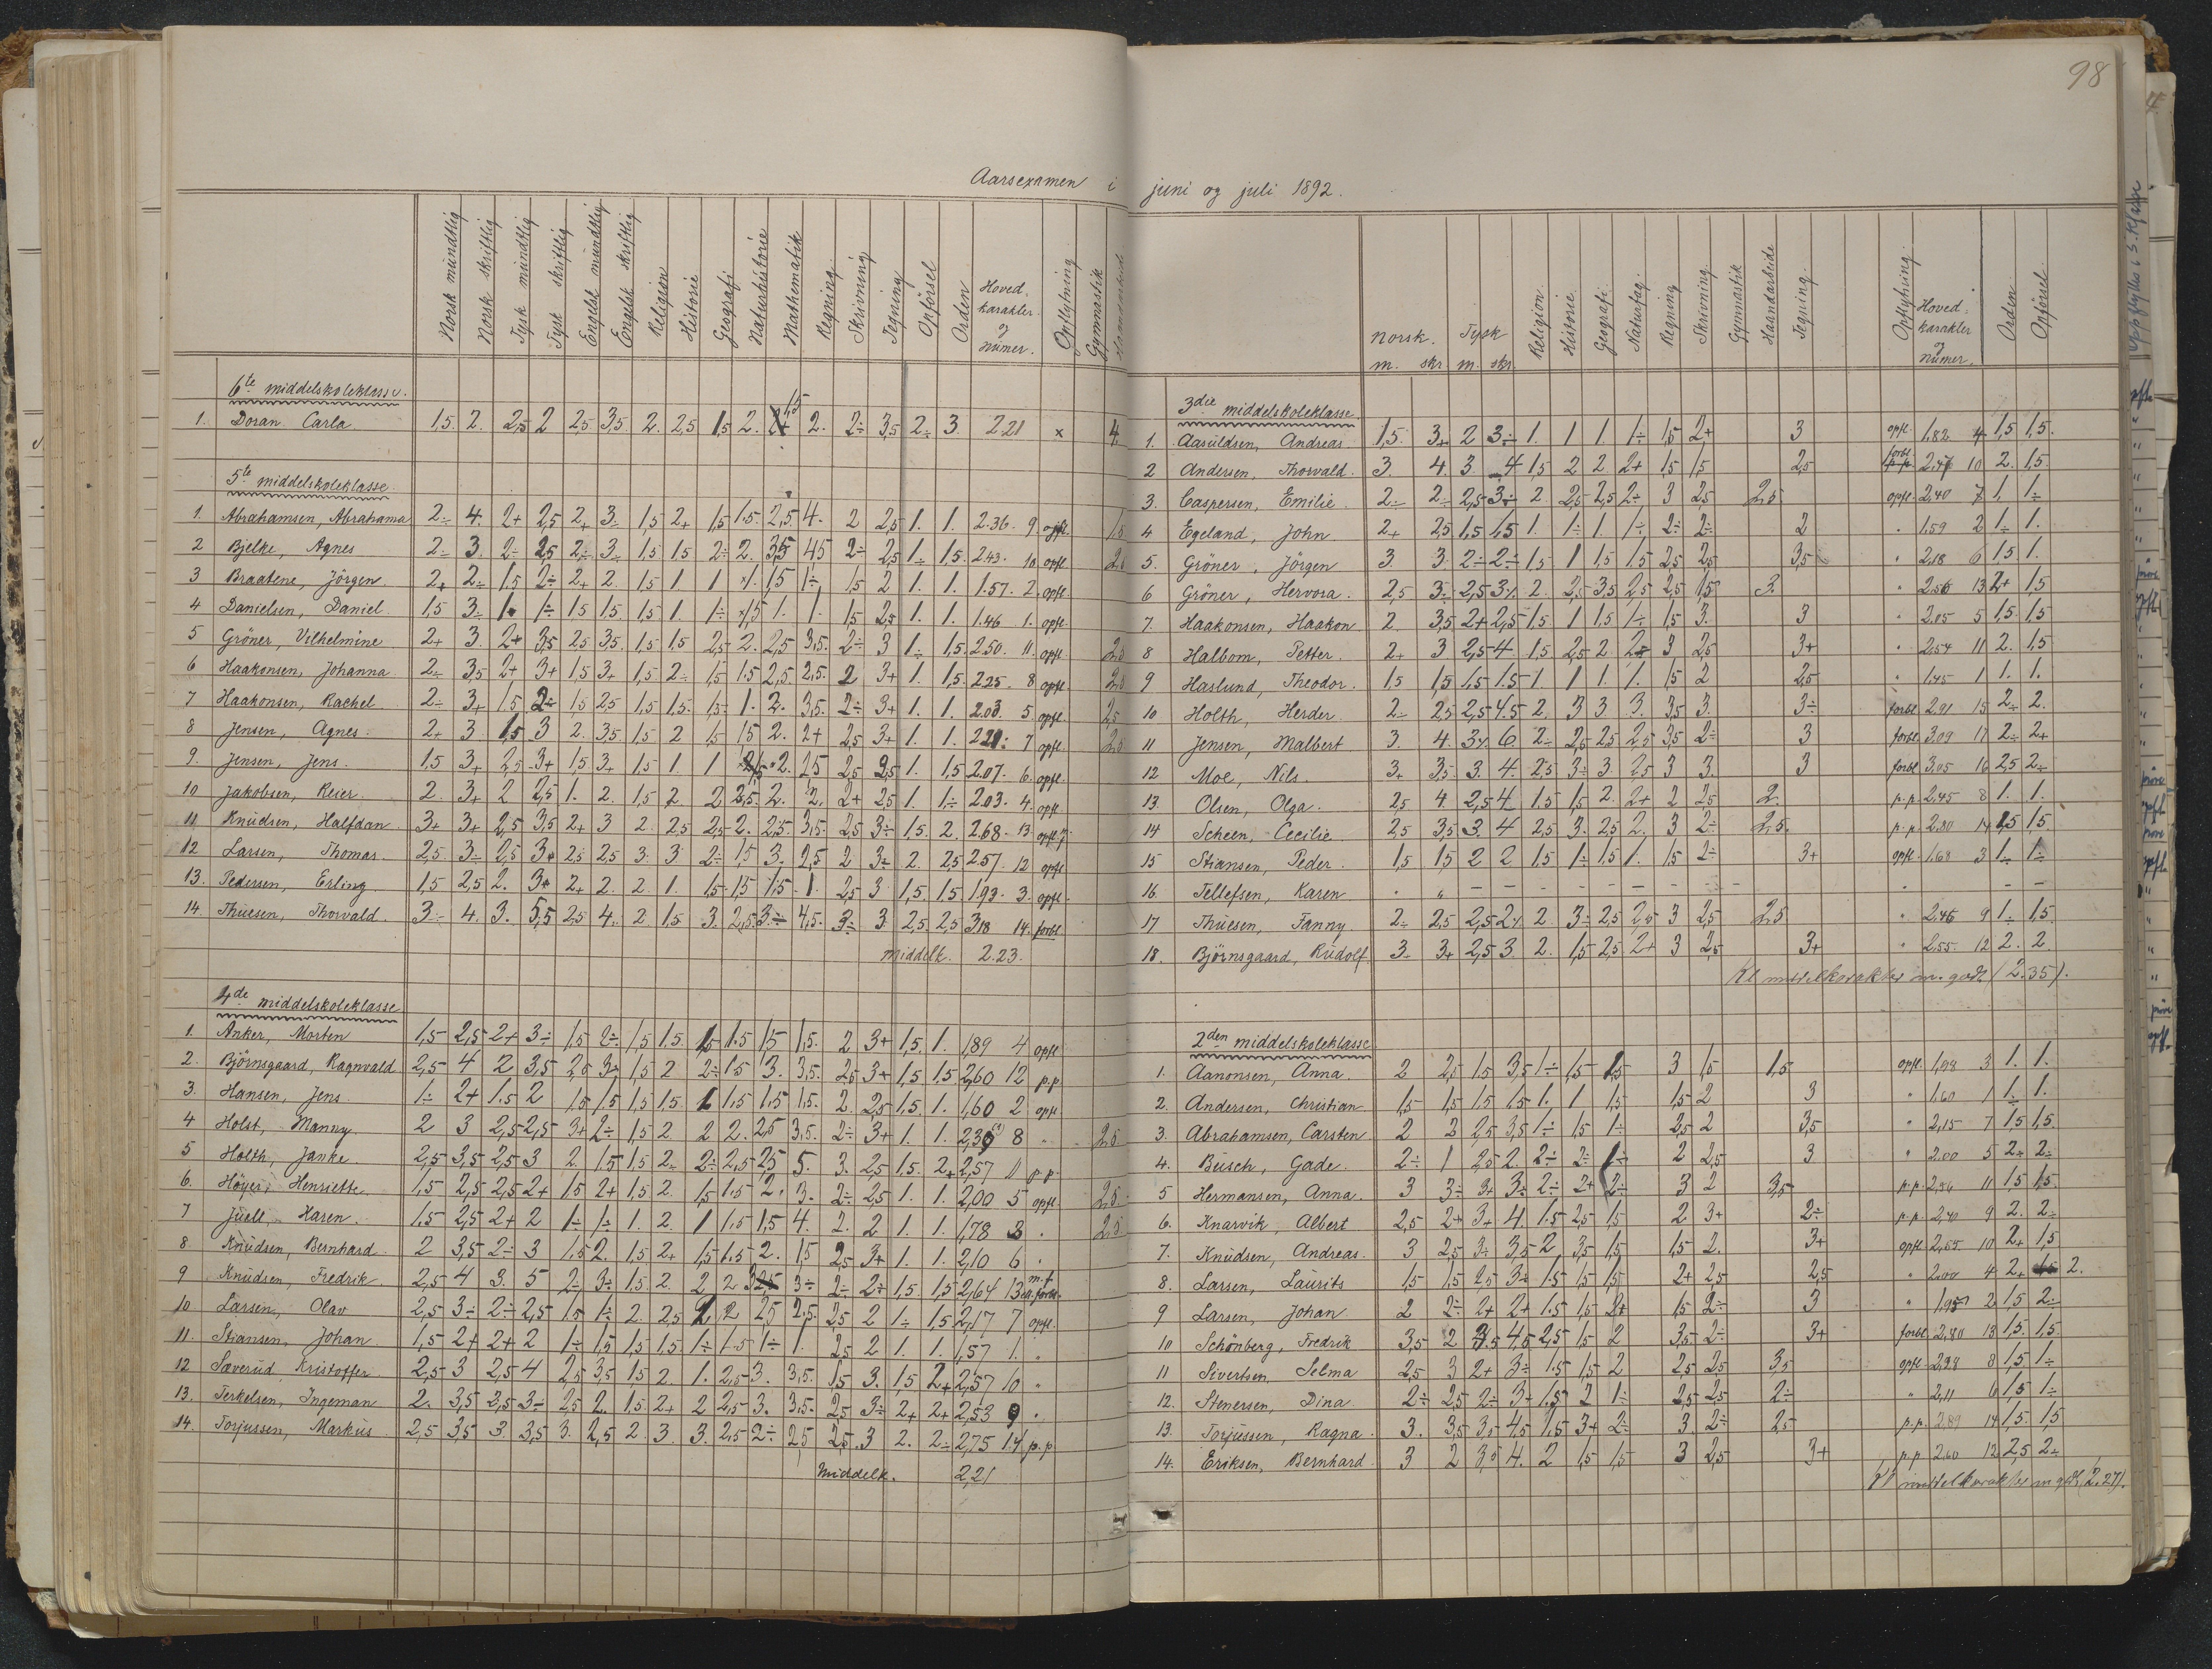 98
Aarsexamen i juni og juli 1892.
Norsk mündtlig Norsk skriftlig Tysk mündtlig Tysk skriftlig Engelsk mündtlig Engelsk skriftlig Religion Historie Geografi Naturhistorie Mathematik Regning Skrivning Tegning Opförsel Orden Hoved-karakter og Nümer. Opflytning Gymnastik Haandarbeide
6te middelskoleklasse.
1. Doran Carla 1,5 2. 2,5 2 2,5 3,5 2. 2,5 1,5 2. 1,5 2. 2÷ 3,5 2÷ 3 2.21 x 4.
5te middelskoleklasse
1. Abrahamsen, Abrahama 2÷ 4. 2+ 2,5 2+ 3÷ 1,5 2+ 1,5 1.5 2,5. 4. 2 2,5 1. 1. 2.36. 9 opfl. 1,5
2 Bjelke, Agnes 2÷ 3. 2÷ 2,5 2÷ 3÷ 1.5 1.5 2÷ 2. 3,5 4,5 2÷ 2,5 1÷ 1.5. 2.43. 10. opfl. 2,5
3 Braatene, Jörgen 2+ 2÷ 1,5 2÷ 2+ 2. 1,5 1 1 1. 1,5 1÷ 1,5 2 1. 1. 1.57. 2. opfl.
4 Danielsen, Daniel. 1,5 3÷ 1. 1÷ 1,5 1,5. 1,5 1. 1÷ 1,5 1. 1. 1,5 2,5 1. 1. 1.46 1. opfl.
5 Gröner, Vilhelmine 2+ 3. 2+ 3,5 2,5 3,5. 1,5 1,5 2,5 2. 2,5 3,5. 2÷ 3 1÷ 1,5. 2.50. 11. opfl. 2,5
6 Haakonsen, Johanna 2÷ 3,5 2+ 3+ 1,5 3+ 1,5 2÷ 1,5 1.5 2,5. 2,5. 2 3+ 1. 1,5 2.25. 8 opfl. 2,5
7 Haakonsen, Rachel 2÷ 3+ 1.5 2÷ 1,5 2,5 1,5 1,5. 1,5 1. 2. 3,5. 2÷ 3+ 1. 1. 2.03. 5. opfl. 2,5
8 Jensen, Agnes. 2+ 3. 1,5 3 2. 3,5 1,5 2 1,5 1,5 2. 2+ 2,5 3+ 1. 1. 2.21. 7 opfl. 2,5
9. Jensen, Jens. 1,5 3+ 2,5 3+ 1,5 3+ 1,5 1. 1 2. 2,5 2,5 2,5 1. 1,5 2.07. 6. opfl.
10 Jakobsen, Reier. 2. 3+ 2 2,5 1. 2. 1,5 2. 2 2,5. 2. 2. 2+ 2,5 1. 1÷ 2.03. 4. opfl.
11 Knüdsen, Halfdan 3+ 3+ 2,5 3,5 2+ 3 2. 2,5 2,5 2. 2,5. 3,5. 2,5 3÷ 1,5. 2. 2.68. 13. opfl.
12. Larsen, Thomas. 2,5. 3÷ 2,5 3+ 2,5 2,5 3. 3. 2÷ 1,5 3. 2,5 2 3÷ 2. 2,5 2.57. 12 opfl.
13. Pedersen, Erling 1,5 2,5 2. 3+ 2+ 2. 2. 1. 1,5. 1,5 1,5. 1. 2,5 3 1,5 1,5 1.93. 3. opfl.
14. Thüesen, Thorvald 3÷ 4. 3. 5,5 2,5 4. 2 1.5 3. 2,5. 3÷ 4,5. 3÷ 3. 2,5. 2,5 3,18 14. forbl.
middelk. 2.23.
4de middelskoleklasse
1. Anker, Morten 1,5 2,5 2+ 3÷ 1,5 2÷ 1,5 1.5. 1,5 1.5 1,5 1,5. 2 3+ 1,5. 1. 1,89 4 opfl.
2. Björnsgaard, Ragnvald 2,5 4 2 3,5 2,5 3÷ 1,5 2 2÷ 1.5 3. 3,5. 2,5 3+ 1,5 1.5 2,60 12 p.p.
3. Hansen, Jens. 1÷ 2+ 1.5 2 1,5 1,5 1,5 1,5. 1 1.5 1,5 1,5. 2. 2,5 1,5. 1. 1,60 2 opfl.
4 Holst, Manny. 2 3 2,5 2,5 3+ 2÷ 1,5 2. 2 2. 2,5 3,5. 2÷ 3+ 1. 1. 2,30 8 " 2,5
5 Holth, Janke. 2,5 3,5 2,5 3 2. 1.5 1.5 2÷ 2÷ 2,5 2,5 5. 3. 2,5 1.5. 2+ 2,57 11 p.p.
6. Höyer, Henriette. 1,5 2,5 2,5 2+ 1,5 2+ 1,5 2. 1,5 1.5 2. 3. 2÷ 2,5 1. 1. 2,00 5 opfl. 2,5
7 Juell, Haren. 1.5 2,5 2+ 2 1÷ 1÷ 1. 2. 1 1.5 1,5 4. 2. 2. 1. 1. 1,78 3 . 2,5
8. Knüdsen, Bernhard. 2 3,5 2÷ 3 1.5 2. 1,5 2+ 1,5 1.5 2. 1,5 2,5 3+ 1. 1. 2,10 6 "
9 Knüdsen, Fredrik. 2,5 4 3. 5 2÷ 3÷ 1.5. 2. 2 2 3÷ 2÷ 2÷ 1.5. 1,5 2,64 13
10 Larsen, Olav 2,5 3÷ 2÷ 2,5 1.5 1÷ 2. 2,5 2 2,5 2,5. 2,5 2 1÷ 1,5 2,17 7 opfl.
11. Stiansen, Johan 1,5 2+ 2+ 2 1÷ 1,5 1,5 1,5. 1÷ 1.5 1÷ 1. 2,5 2 1. 1. 1,57 1. "
12 Sæverüd, Kristoffer 2,5 3 2,5 4 2,5 3,5 1.5 2. 1. 2,5 3. 3,5. 1,5 3. 1,5 2+ 2,57 10 "
13. Terkelsen, Ingeman 2. 3,5 2,5 3÷ 2,5 2. 1.5 2+ 2 2,5 3. 3,5. 2,5 3÷ 2+ 2+ 2,53 9 "
14. Torjüssen, Marküs 2,5 3,5 3. 3,5 3. 2,5 2. 3. 3. 2,5 2÷ 2,5 2,5. 3 2. 2÷ 2,75 14 p.p.
Middelk. 2,21
Norsk. m. skr. Tysk m. skr. Religion. Historie. Geografi. Naturfag. Regning Skrivning. Gymnastik Haandarbeide Tegning. Opflytning. Hoved-karakter og Nümer. Orden. Opförsel.
3die middelskoleklasse.
1. Aasüldsen, Andreas 1,5. 3+ 2 3÷ 1. 1 1. 1÷ 1,5 2+ 3 opfl. 1,82 4 1,5 1,5.
2 Andersen, Thorvald. 3. 4. 3. 4 1,5 2 2. 2+ 1,5 1,5 2,5 forbl. 2.47 10 2. 1.5.
3. Caspersen, Emilie. 2÷ 2÷ 2,5 3÷ 2. 2,5 2,5 2÷ 3 2,5 2,5 opfl. 2,40 7 1. 1÷
4 Egeland, John 2+ 2,5 1,5 1,5 1. 1÷ 1. 1÷ 2÷ 2÷ 2 " 1.59 2 1÷ 1.
5. Gröner, Jörgen 3. 3. 2÷ 2÷ 1,5 1 1,5 1.5 2,5 2,5 3,5 " 2,18 6 1.5 1.
6 Gröner, Hervora. 2,5 3÷ 2,5 3÷ 2. 2,5 3,5 2,5 2,5 1,5 3. " 2.56 13 2+ 1,5
7. Haakonsen, Haakon 2. 3,5 2+ 2,5 1.5 1 1.5 1÷ 1,5 3. 3 " 2.05 5 1.5. 1.5
8 Halbom, Petter. 2+ 3 2,5 4. 1.5 2,5 2 2÷ 3 2,5 3+ " 2.54 11 2. 1,5
9 Haslund, Theodor. 1.5 1,5 1.5 1.5 1. 1 1. 1. 1,5 2 2,5 " 1.45 1 1. 1.
10 Holth, Herder 2÷ 2,5 2,5 4.5 2. 3 3. 3. 3,5 3. 3÷ forbl 2.91 15 2÷ 2.
11 Jensen, Malbert 3. 4. 3÷ 6. 2÷ 2,5 2,5 2,5 3,5 2÷ 3 forbl. 3,09 17 2÷ 2+
12 Moe, Nils. 3+ 3,5 3. 4. 2,5 3÷ 3. 2,5 3 3. 3 forbl 3,05 16 2,5 2÷
13. Olsen, Olga. 2,5 4. 2,5 4. 1.5 1,5 2. 2+ 2 2,5 2. p.p. 2,45 8 1. 1.
14 Scheen, Cecilie 2,5 3,5 3. 4 2,5 3. 2,5 2. 3 2÷ 2,5. p.p. 2.80 14 1,5 1.5
15 Stiansen, Peder. 1,5 1,5 2 2 1.5 1÷ 1.5 1. 1.5 2÷ 3+ opfl. 1.68 3 1÷ 1÷
16. Tellefsen, Karen . " – – – – – – – – – " – –
17 Thüesen, Fanny 2÷ 2,5 2,5 2÷ 2 3÷ 2,5 2,5 3 2,5 2,5 " 2.46 9 1÷ 1,5
18. Björnsgaard, Rüdolf. 3÷ 3+ 2,5 3. 2. 1,5 2,5 2+ 3 2,5 3+ " 2.55. 12 2. 2.
Kl middelkarakter m. godt (2.35).
2den middelskoleklasse
1. Aanonsen, Anna. 2 2,5 1.5 3,5 1÷ 1,5 1,5 3 1,5 1,5 opfl. 1,98 3 1. 1.
2. Andersen, Christian 1,5 1,5 1,5 1,5 1. 1 1,5 1,5 2 3 " 1,60 1 1÷ 1.
3. Abrahamsen, Carsten 2 2 2,5 3,5 1÷ 1,5 1÷ 2,5 2 3,5 " 2,15 7 1,5 1,5.
4. Büsch, Gade. 2÷ 1 2,5 2. 2÷ 2÷ 1÷ 2 2,5 3 " 2.00 5 2÷ 2÷
5 Hermansen, Anna. 3 3÷ 3+ 3÷ 2÷ 2+ 2÷ 3 2 3,5 p.p. 2,56 11 1.5 1.5.
6. Knarvik, Albert 2,5 2+ 3+ 4. 1.5 2,5 1,5 2 3+ 2÷ p.p. 2,40 9 2. 2÷
7. Knüdsen, Andreas. 3 2,5 3÷ 3,5 2. 3,5 1,5 1,5 2. 3+ opfl. 2,55 10 2+ 1,5
8. Larsen, Laürits 1,5 1.5 2,5 3÷ 1.5 1,5 1,5 2+ 2,5 2,5 " 2.00 4 2+ 2.
9 Larsen, Johan 2 2÷ 2+ 2+ 1.5 1,5 2+ 1,5 2÷ 3 " 1,95 2 1.5 2÷
10 Schönberg, Fredrik 3,5 2 3.5 4,5 2,5 1,5 2 3,5 2÷ 3+ forbl. 2,80 13 1,5. 1,5.
11 Sivertsen Selma 2,5 3 2+ 3÷ 1.5 1,5 2 2,5 2,5 3,5 opfl. 2,28 8 1,5 1÷
12. Stenersen, Dina. 2÷ 2,5 2÷ 3+ 1.5 2 1÷ 2,5 2,5 2÷ " 2,11 6 1,5 1÷
13. Torjüssen, Ragna. 3. 3,5 3,5 4,5 1.5 3+ 2÷ 3. 2÷ 2,5 p.p. 2.89 14 1,5 1,5
14. Eriksen, Bernhard 3 2 3,5 4. 2 1,5 1,5 3 2,5 3+ p.p. 2.60 12 2,5 2÷
Kl middelkarakter m godt (2.27).